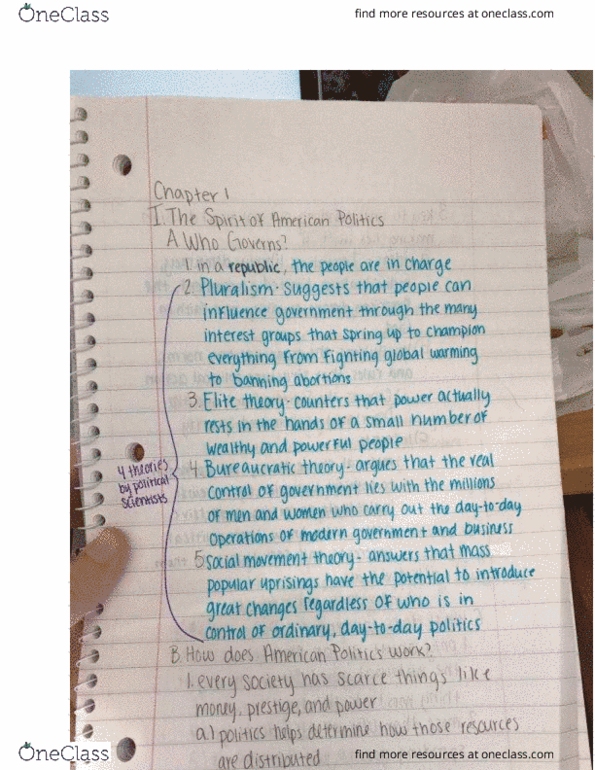 OneClass
find more resources at oneclass.com
Chapter 1
I. The Spirit of American Politics
A. Who Governs?
1. in a republic, the people are in charge
2. Pluralism- suggests that people can
influence government through the many
interest groups that spring up to champion
everything from fignting global warming
to banning abortions
3. Elite theory- counters that power actually
rests in the hands of a small number of
wealthy and powerful people
4. Bureaucratic theory- argues that the real
control of government lies with the millions
of men and women who carry out the day-to-day
operations of modern government and business
5. Social movement theory- answers that mass
popular uprisings have the potential to introduce
great changes regardless of who is in
control of ordinary, day-to-day politics
4 theories
by political
scientists
B. How does American Politics work?
1. every society has scarce things like
money, prestige, and power
a.) politics helps determine how those resources
are distributed
OneClass
find more resources at oneclass.com